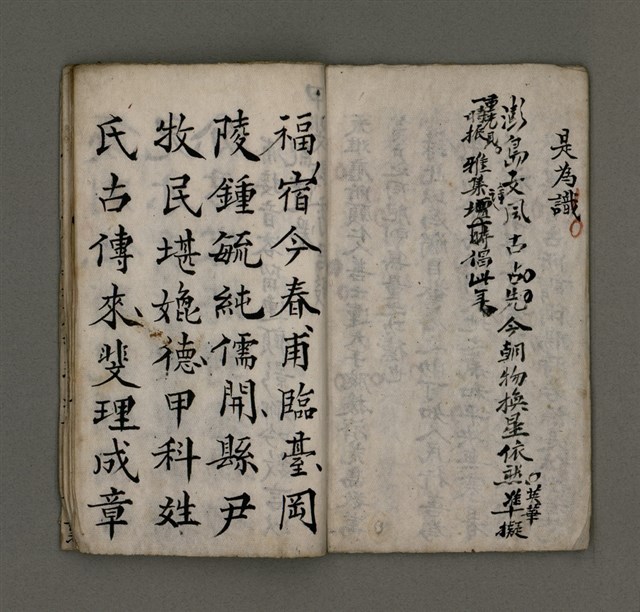 是為識
澎島文風古占先今朝物換星依然準擬
英華
重光
一時振雅集壇詩倡此年
福宿今春甫臨臺岡
陵鍾毓純儒開縣尹
牧民堪媲德甲科姓
氏古傳來斐理成章